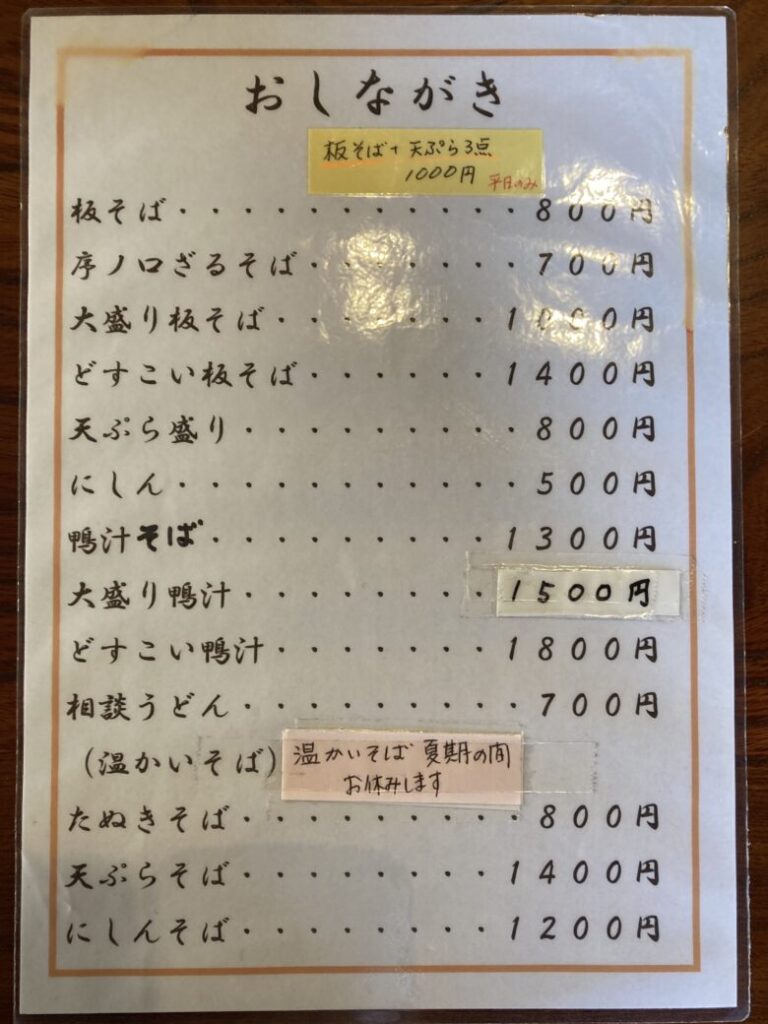 おしながき
板そば+天ぷら3点
1000円 平日のみ
板そば・・・・・・・・・・・800円
序ノ口ざるそば・・・・・・・700円
大盛り板そば・・・・・・・1000円
どすこい板そば・・・・・・1400円
天ぷら盛り・・・・・・・・・800円
にしん・・・・・・・・・・・500円
鴨汁そば・・・・・・・・・1300円
大盛り鴨汁・・・・・・・・1500円
どすこい鴨汁・・・・・・・1800円
相談うどん・・・・・・・・・700円
(温かいそば) 温かいそば 夏期の間
お休みします
たぬきそば・・・・・・・・・800円
天ぷらそば・・・・・・・・1400円
にしんそば・・・・・・・・1200円